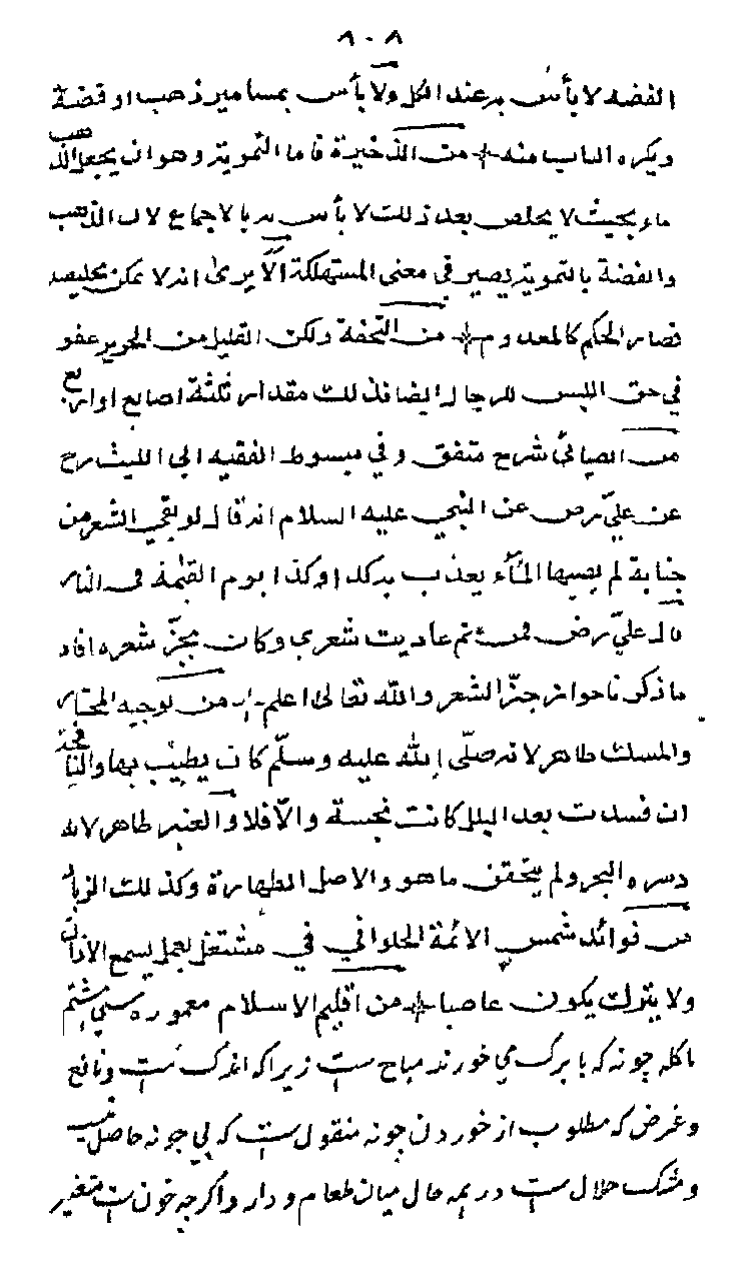 ٨٠٨
الفضه لا بأس به عند الكل ولا بأس بمسامير ذهب او فضة
ويكره الباب منه من الذخيرة فاما التمويه وهو ان يجعل الذهب
ماء بحيث لا يخلص بعد ذلك لا بأس به بالاجماع لان الذهب
والفضة بالتمويه يصير في معنى المستهلكة الا يرى انه لا يمكن تخليصه
فصار الحكم كالمعدوم من التحفة ولكن القليل من الحرير عفو
في حق اللبس للرجال ايضا ذلك مقدار ثلثة اصابع او اربع
من شرح متفق وفي مبسوط الفقيه ابي الليث رح
عن علي رض عن النبي عليه السلام انه قال لو بقي الشعر من
جنابة لم يصبها الماء يعذب به كذا وكذا يوم القيمة في النار
قال علي رض فمن ثم عاديت شعري وكان يجزّ شعره افاد
ما ذكرنا جواز جزّ الشعر والله تعالى اعلم من توجيه المختار
والمسك طاهر لانه صلّى الله عليه وسلّم كان يطيب بها والنافجة
ان فسدت بعد البلل كانت نجسة والّا فلا والعنبر طاهر لانه
دسره البحر ولم يتحقق ما هو والاصل الطهارة وكذلك الزباد
من فوائد شمس الائمة الحلواني في مشتغل بعمل يسمع الاذان
ولا يترك يكون عاصيا من اقليم الاسلام معموره
اكله چونه كه با برك مي خورند مباح ست زيرا كه اندك ست ونافع
وغرض كه مطلوب از خوردن چونه منقول ست كه بي چونه حاصل نيست
ومشك حلال ست در همه حال ميان طعام و دارو اگرچه خون ست متغير